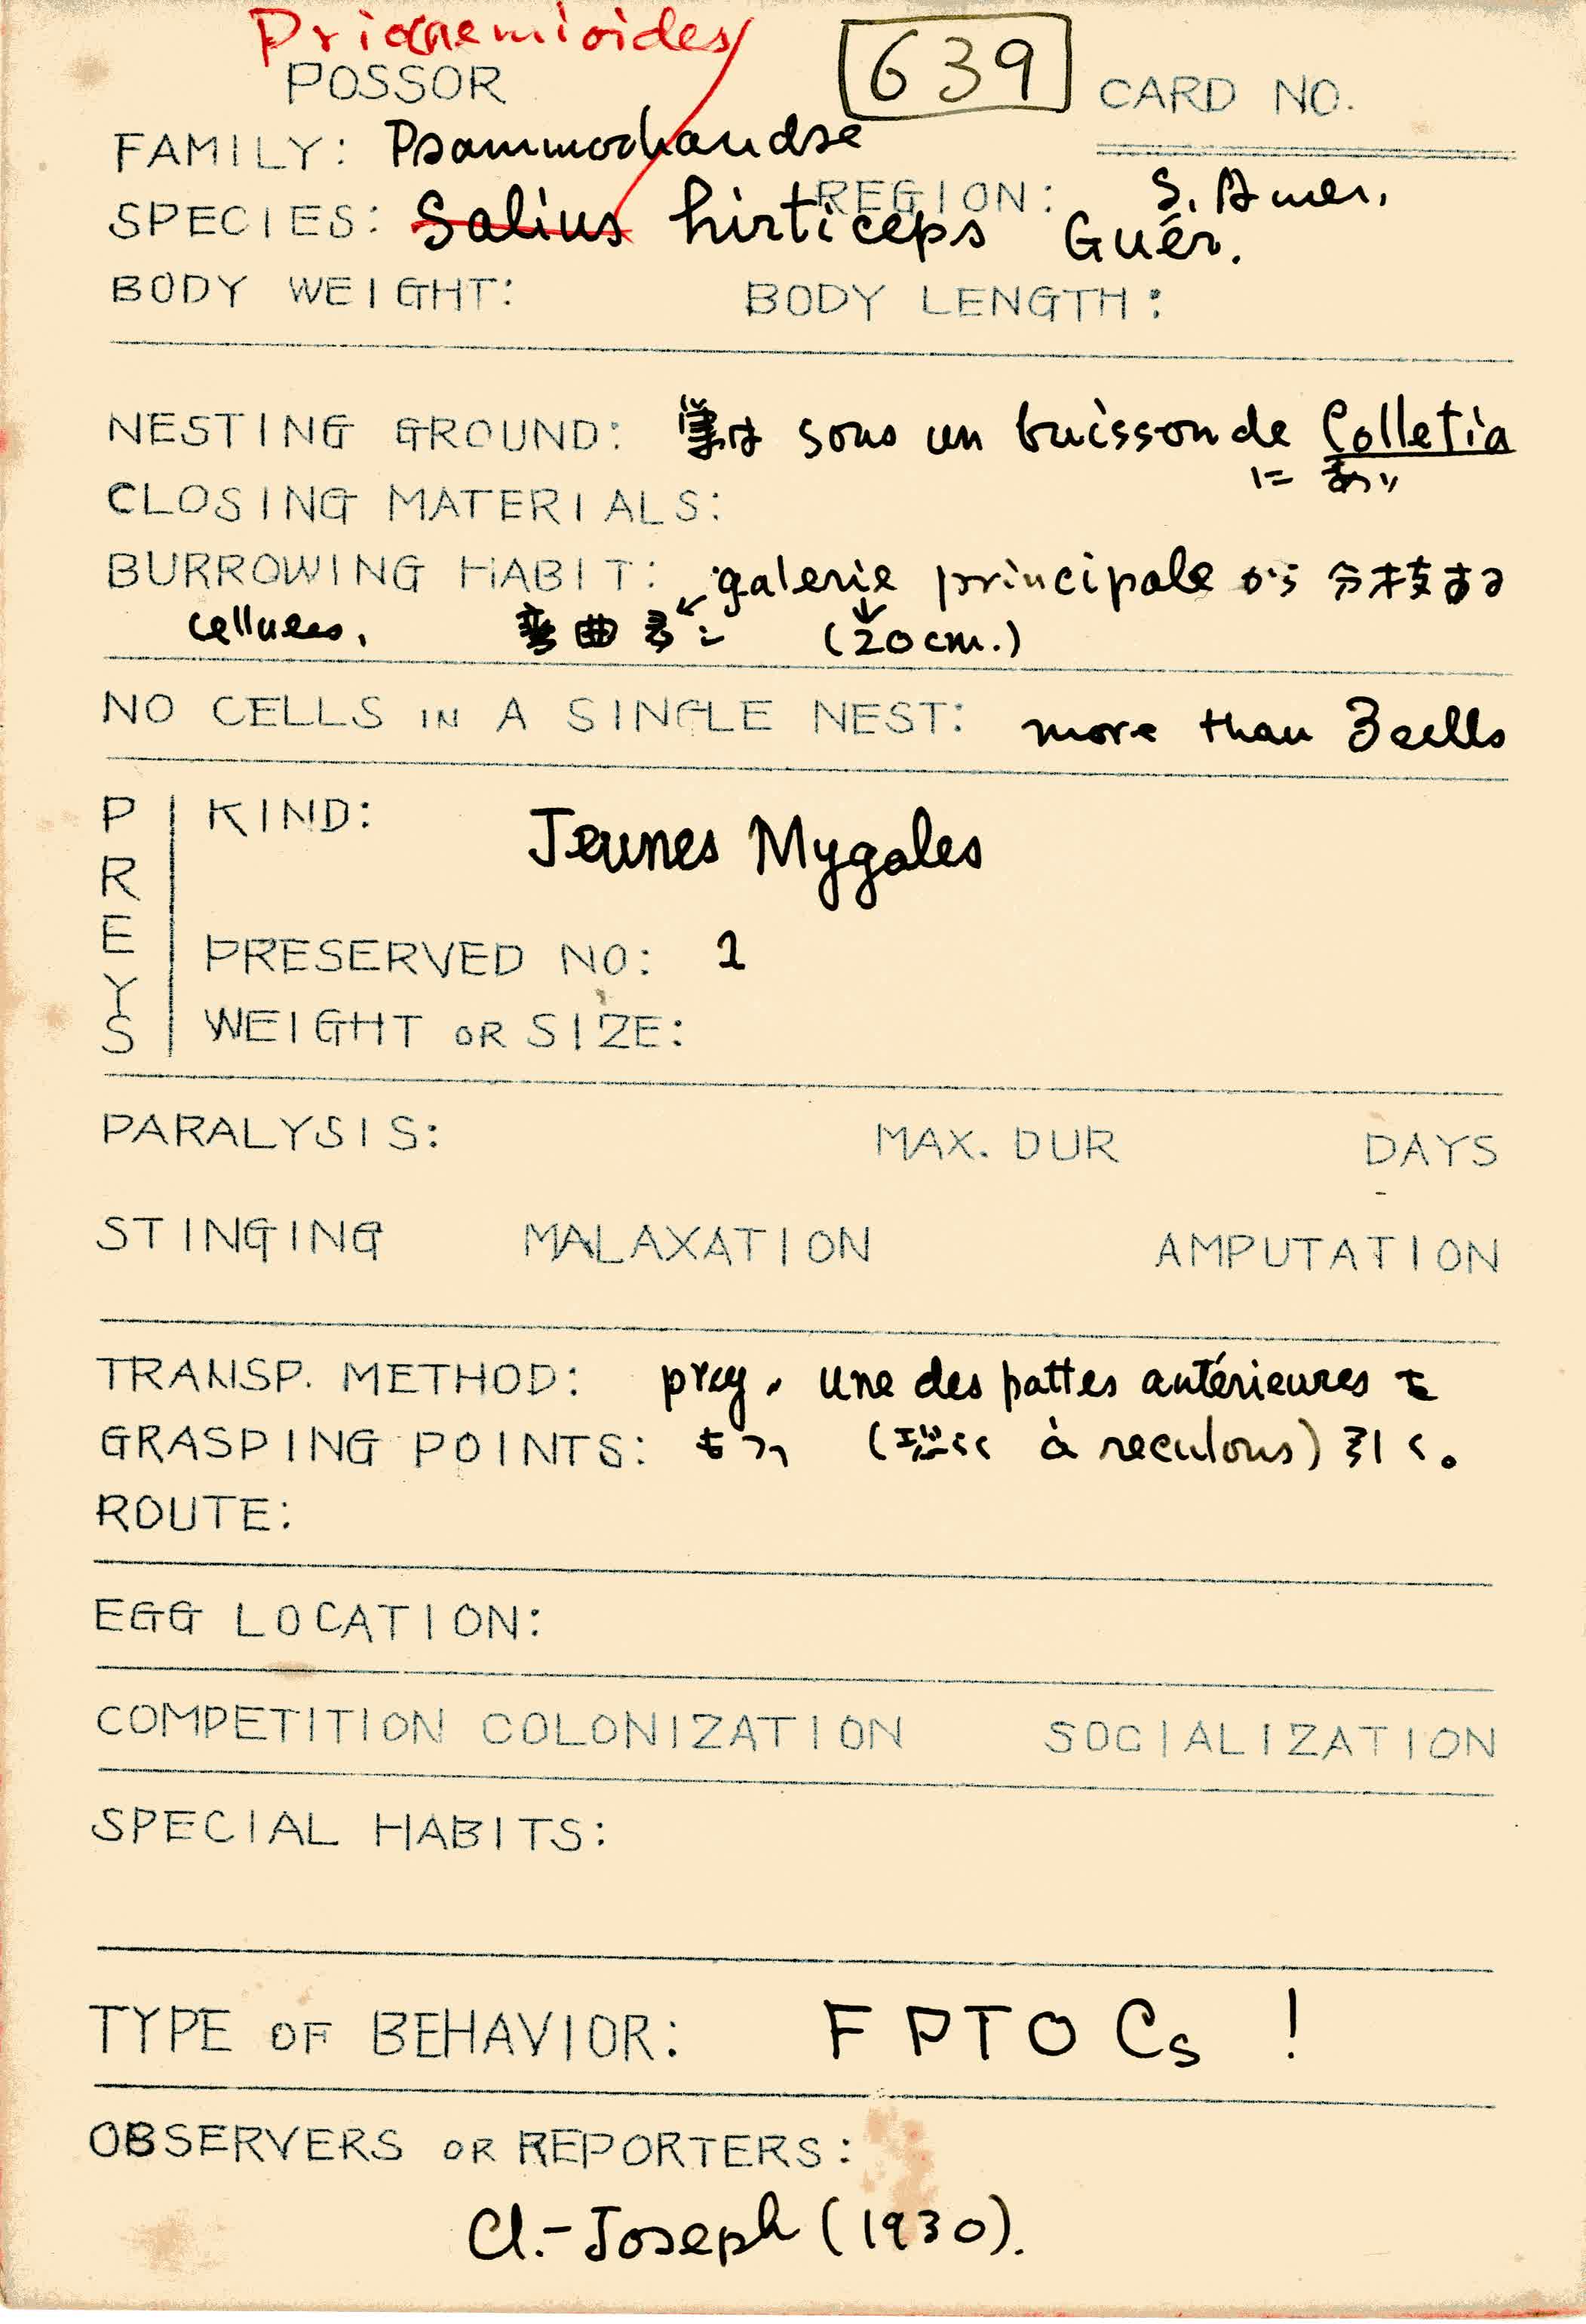 Prionemioides
POSSOR 639 CARD NO.
FAMILY: Psammocharidae
REGION: S. Amer.
SPECIES: Salius hirticeps Guér.
BODY WEIGHT: BODY LENGTH:
NESTING GROUND: 巣は sous un buisson de Colletia
にあり
CLOSING MATERIALS:
BURROWING HABIT: galerie principale から分枝する
cellules. 彎曲 (20cm.)
NO CELLS IN A SINGLE NEST: more than 3 cells
PREYS
KIND: Jeunes Mygales
PRESERVED NO: 1
WEIGHT OR SIZE:
PARALYSIS: MAX. DUR DAYS
STINGING MALAXATION AMPUTATION
TRANSP. METHOD: prey. une des pattes antérieures を
GRASPING POINTS: もつて (à reculons) 引く。
ROUTE:
EGG LOCATION:
COMPETITION COLONIZATION SOCIALIZATION
SPECIAL HABITS:
TYPE OF BEHAVIOR: F P T O Cs !
OBSERVERS OR REPORTERS:
Cl.-Joseph (1930).